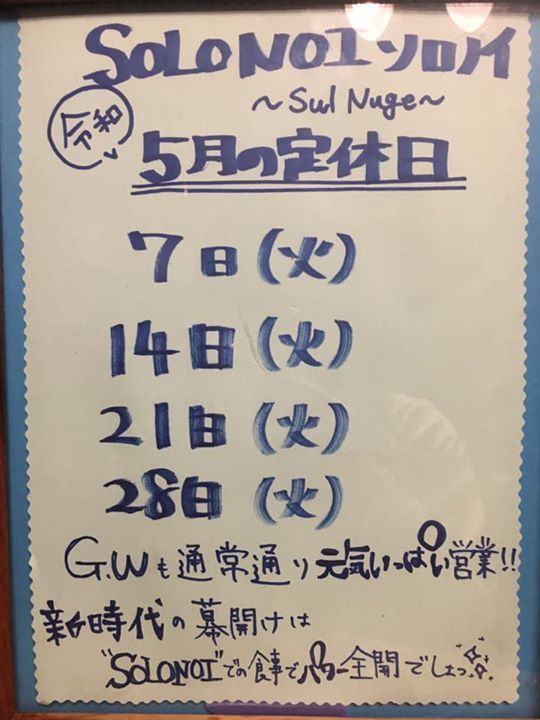 SOLONOI ソロノイ
~Sul Nuge~
令和
5月の定休日
7日(火)
14日(火)
21日(火)
28日(火)
G.Wも通常通り元気いっぱい営業!!
新時代の幕開けは
"SOLONOI"での食事でパワー全開でしょっ